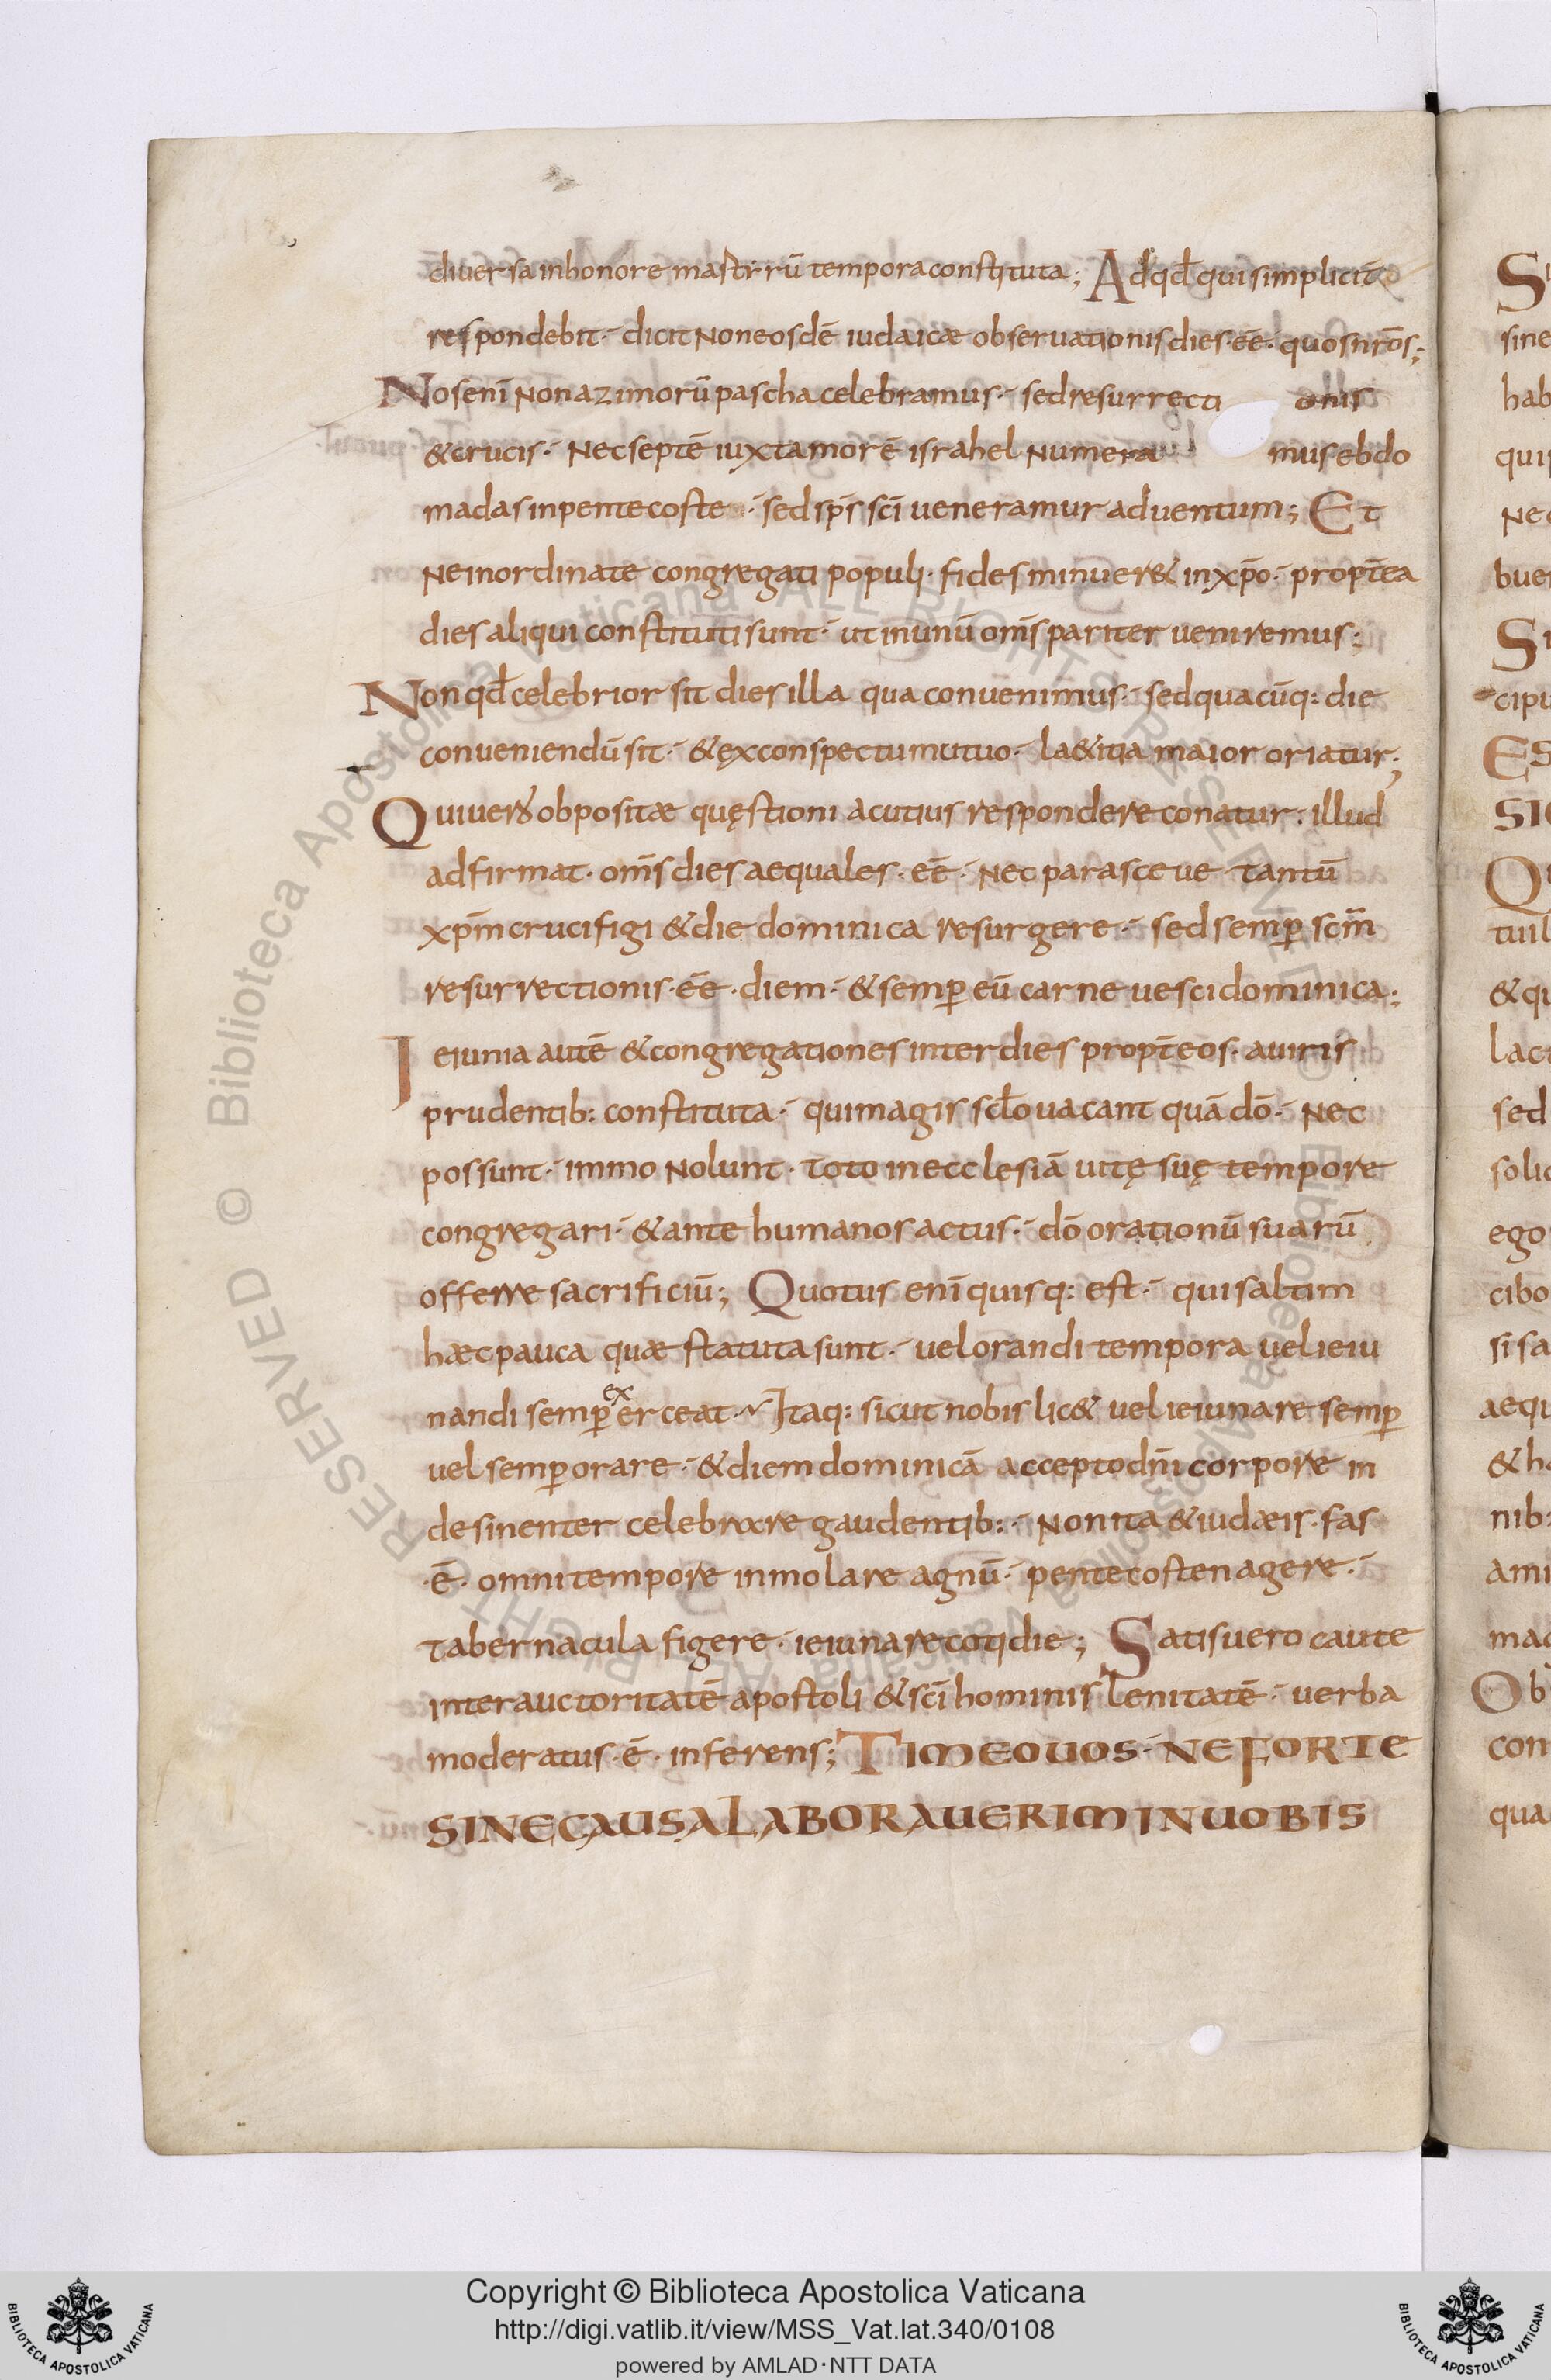 diuersa in honore mastirrū tempora constituta; Ad qđ qui simplicit̄
respondebit · dicit Non eosdē iudaicae obseruationis dies · eē · quos nr̄os;
Nos enī Non azimorū pascha celebramus · sed resurrecti onis
& crucis · Nec septē iuxta morē israhel Numera mus ebdo
madas in pentecoste · sed sp̄s sc̄i ueneramur aduentum; Et
Ne inordinate congregati populi · fides minuer& in xp̄o · propt̄ea
dies aliqui constituti sunt · ut in unū om̄s pariter ueniremus;
Non qđ celebrior sit dies illa qua conuenimus · sed quacūq: die
conueniendū sit · & ex conspectu mutuo · la&itia maior oriatur;
Qui uero obpositae quęstioni acutius respondere conatur · illud
adfirmat · om̄s dies aequales · eē · Nec parasceue tantū
xp̄m crucifigi & die dominica resurgere · sed semꝑ sc̄m
resurrectionis · eē · diem · & semꝑ eū carne uesci dominica;
Ieiunia autē & congregationes inter dies propt̄ eos · a uiris
prudentib: constituta · qui magis scło uacant quā dō · Nec
possunt · immo Nolunt · toto in ecclesiā uitę suę tempore
congregari · & ante humanos actus · dō orationū suarū
offerre sacrificiū; Quotus enī quisq: est · qui saltim
haec pauca quae statuta sunt · uel orandi tempora uel ieiu
nandi semꝑ ex erceat · Itaq: sicut nobis lic& uel ieiunare semꝑ
uel semꝑ orare · & diem dominicā accepto dn̄i corpore in
desinenter celebrare gaudentib: · Non ita & iudaeis · fas
· ē · omni tempore inmolare agnū · pentecosten agere ·
tabernacula figere · ieiunare cotidie; Satis uero caute
inter auctoritatē apostoli & sc̄i hominis lenitatē · uerba
moderatus · ē · inferens; TIMEO UOS · NE FORTE
SINE CAUSA LABORAUERIM IN UOBIS
Copyright © Biblioteca Apostolica Vaticana
http://digi.vatlib.it/view/MSS_Vat.lat.340/0108
powered by AMLAD·NTT DATA